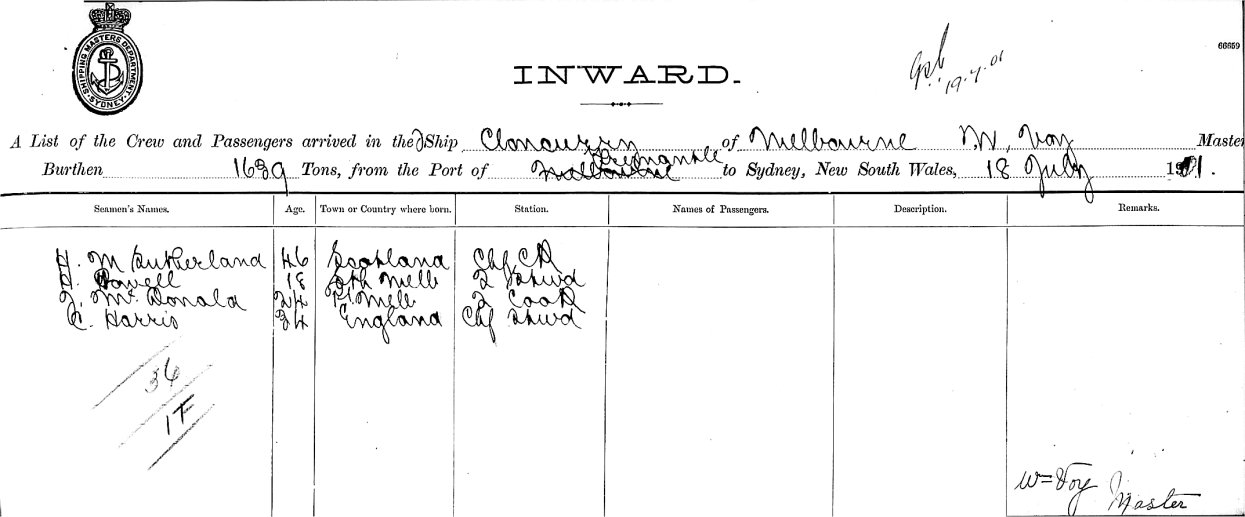 SHIPPING MASTERS DEPARTMENT
SYDNEY
66659
19.7.01
INWARD.
A List of the Crew and Passengers arrived in the Ship Cloncurry of Melbourne W. Voy Master
Fremantle
Burthen 1639 Tons, from the Port of Melbourne to Sydney, New South Wales, 18 July 1901.
Seamen's Names. Age. Town or Country where born. Station. Names of Passengers. Description. Remarks.
H. M Sutherland 46 Scotland Chf Ck
Powell 18 Sth Melb 2 Stwd
Mc Donald 24 Pt Melb 2 Cook
C. Harris 34 England Chf Stwd
36
1 F
Wm Voy
Master